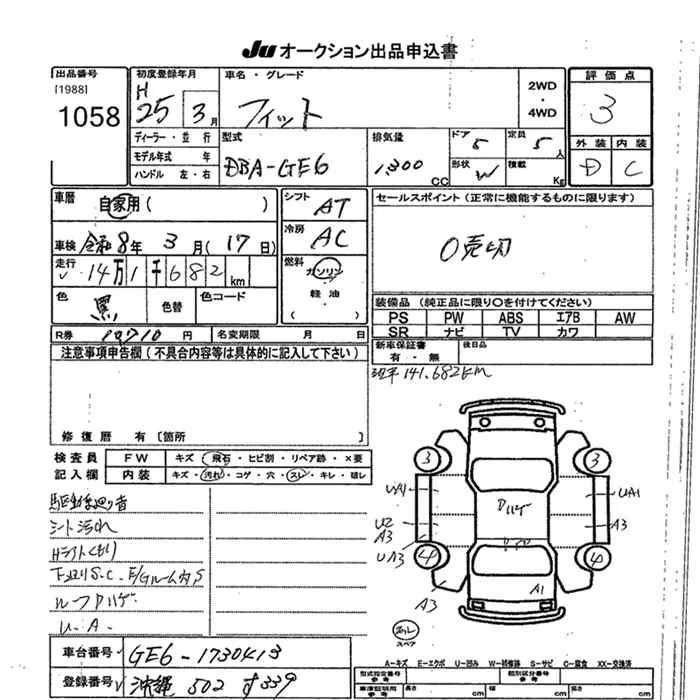 JU オークション出品申込書
出品番号
[1988]
1058
初度登録年月
H 25 3月
車名・グレード
フィット
2WD
・
4WD
評価点
3
ディーラー・並行
モデル年式 年
ハンドル 左・右
型式
DBA-GE6
排気量
1,300 CC
ドア 5
定員 5人
形状 W
積載 Kg
外装 内装
D C
車歴 自家用( )
シフト AT
セールスポイント (正常に機能するものに限ります)
車検 令和8年 3月(17日)
冷房 AC
○売切
走行 14万1千682km
燃料 ガソリン
軽油・
( )
色 黒 色替 色コード
装備品 (純正品に限り○を付けてください)
PS PW ABS エアB AW
SR ナビ TV カワ
R券 10710円 名変期限 月 日
新車保証書
有・無
後日品
注意事項申告欄(不具合内容等は具体的に記入して下さい)
現車 141.682KM
修復歴 有〔箇所 〕
検査員 FW キズ・飛石・ヒビ割・リペア跡・×要
記入欄 内装 キズ・汚れ・コゲ・穴・スレ・キレ・破レ
駆動系廻り音
シート汚れ
Hライトくもり
下廻りS.C. E/Gルーム内S
ルーフハゲ
U.A.
3 3
UA1 UA1
Pハゲ
U2
A3 A3
UA3 4 4
A1
A3
スペア
A-キズ E-エクボ U-凹み W-補修跡 S-サビ C-腐食 XX-交換済
車台番号 GE6-1730413
型式指定番号 類別区分番号
登録番号 沖縄 502 す339
長さ cm 幅 cm 高さ cm